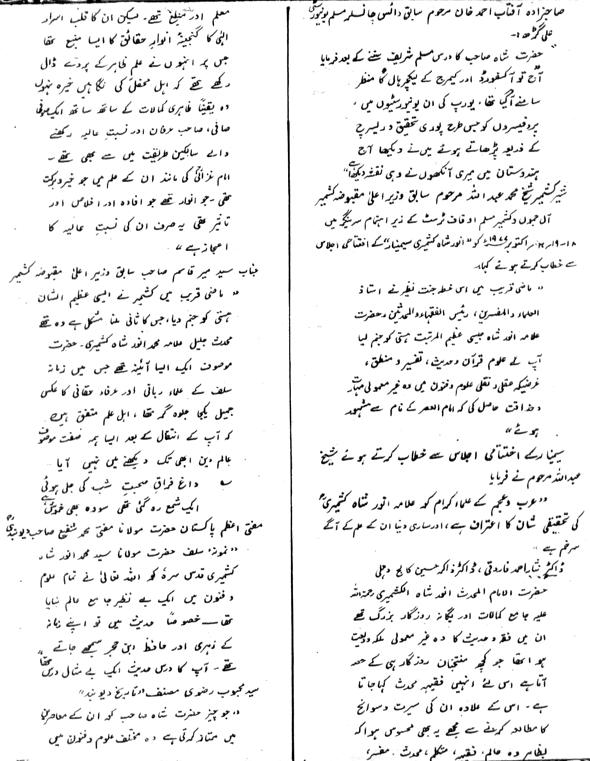 صاحبزادہ آفتاب احمد خان مرحوم سابق وائس چانسلر مسلم یونیورسٹی
علی گڑھ:۔
حضرت شاہ صاحب کا درس مسلم شریف سننے کے بعد فرمایا
آج تو آکسفورڈ اور کیمرج کے لیکچر ہال کا منظر
سامنے آگیا تھا، یورپ کی ان یونیورسٹیوں میں
پروفیسروں کو جس طرح پوری تحقیق و ریسرچ
کے ذریعہ پڑھاتے ہوئے میں نے دیکھا آج
ہندوستان میں میری آنکھوں نے وہی نقشہ دیکھا"
شیر کشمیر شیخ محمد عبد اللہ مرحوم سابق وزیر اعلیٰ مقبوضہ کشمیر
آل جموں و کشمیر مسلم اوقاف ٹرسٹ کے زیر اہتمام سرینگر میں
اکتوبر ۱۹۷۷ء کو "انور شاہ کشمیری سیمینار" کے افتتاحی اجلاس
سے خطاب کرتے ہوئے کہا:۔
"ماضی قریب میں اس خطہ جنت نظیر نے استاذ
العلماء والمفسرین، رئیس الفقہاء والمحدثین حضرت
علامہ انور شاہ جیسی عظیم المرتبت ہستی کو جنم لیا
آپ نے علوم قرآن و حدیث، تفسیر و منطق،
غرضیکہ عقلی و نقلی علوم و فنون میں وہ غیر معمولی مہارت
و حذاقت حاصل کی کہ امام العصر کے نام سے مشہور
ہوئے"
سیمینار کے اختتامی اجلاس سے خطاب کرتے ہوئے شیخ
عبد اللہ مرحوم نے فرمایا
"عرب و عجم کے علماء کرام کو علامہ انور شاہ کشمیری
کی تحقیقی شان کا اعتراف ہے، اور ساری دنیا ان کے علم کے آگے
سر خم ہے"
ڈاکٹر نثار احمد فاروقی، ڈاکٹر ذاکر حسین کالج دہلی
حضرت الامام المحدث انور شاہ الکشمیری رحمۃ اللہ
علیہ جامع کمالات اور یگانہ روزگار بزرگ تھے
ان میں فقہ و حدیث کا وہ غیر معمولی ملکہ ودیعت
ہوا تھا جو کچھ منتخبان روزگار ہی کے حصہ
آتا ہے اس لئے انہیں فقیہہ محدث کہا جاتا
ہے۔ اس کے علاوہ ان کی سیرت و سوانح
کا مطالعہ کرنے سے مجھے یہ بھی محسوس ہوا کہ
بظاہر وہ عالم، فقیہہ، متکلم، محدث، مفسر،
معلم اور مبلغ تھے۔ لیکن ان کا قلب اسرار
الٰہی کا گنجینہ انوار حقائق کا ایسا منبع تھا
جس پر انہوں نے علم ظاہر کے پردے ڈال
رکھے تھے کہ اہل محفل کی نگاہیں خیرہ نہ ہوں
وہ یقیناً ظاہری کمالات کے ساتھ ساتھ ایک صوفی
صافی، صاحب عرفان اور نسبت عالیہ رکھنے
والے سالکین طریقت میں سے بھی تھے۔
امام غزالی کی مانند ان کے علم میں جو خیر و برکت
تھی۔ جو انوار تھے جو افادہ اور اخلاص اور
تاثیر تھی یہ صرف ان کی نسبت عالیہ کا
اعجاز ہے"
جناب سید میر قاسم صاحب سابق وزیر اعلیٰ مقبوضہ کشمیر
"ماضی قریب میں کشمیر نے ایسی عظیم الشان
ہستی کو جنم دیا، جس کا ثانی ملنا مشکل ہے وہ تھے
محدث جلیل علامہ محمد انور شاہ کشمیری۔ حضرت
موصوف ایک ایسا آئینہ تھے جس میں زمانہ
سلف کے علماء ربانی اور عرفاء حقانی کا عکس
جمیل یکجا جلوہ گر تھا، اہل علم متفق ہیں
کہ آپ کے انتقال کے بعد ایسا ہمہ صفت موصوف
عالم دین ابھی تک دیکھنے میں نہیں آیا
داغ فراق صحبت شب کی جلی ہوئی
ایک شمع رہ گئی تھی سو وہ بھی خموش ہے
مفتی اعظم پاکستان حضرت مولانا مفتی محمد شفیع صاحب دیوبندی
"نمونہ سلف حضرت مولانا سید محمد انور شاہ
کشمیری قدس سرہ کو اللہ تعالیٰ نے تمام علوم
و فنون میں ایک بے نظیر جامع عالم بنایا
تھا۔ خصوصاً حدیث میں تو اپنے زمانہ
کے زہری اور حافظ ابن حجر سمجھے جاتے
تھے۔ آپ کا درس حدیث ایک بے مثال درس تھا"
سید محبوب رضوی مصنف "تاریخ دیوبند"
"جو چیز حضرت شاہ صاحب کو ان کے معاصرین
میں ممتاز کرتی ہے وہ مختلف علوم و فنون میں